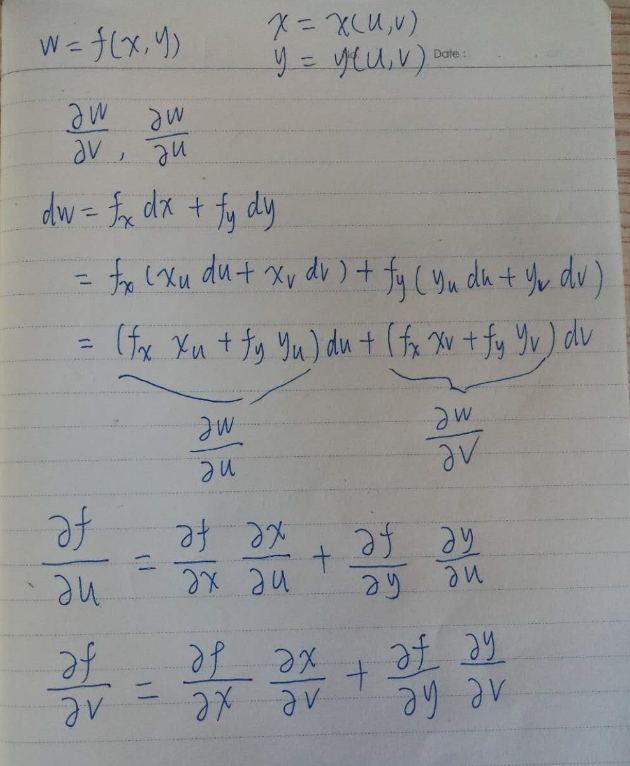 w = f(x, y)
x = x(u, v)
y = y(u, v) Date :
∂w/∂v , ∂w/∂u
dw = fₓ dx + f_y dy
= fₓ (x_u du + x_v dv) + f_y (y_u du + y_v dv)
= (fₓ x_u + f_y y_u) du + (fₓ x_v + f_y y_v) dv
∂w/∂u ∂w/∂v
∂f/∂u = ∂f/∂x ∂x/∂u + ∂f/∂y ∂y/∂u
∂f/∂v = ∂f/∂x ∂x/∂v + ∂f/∂y ∂y/∂v